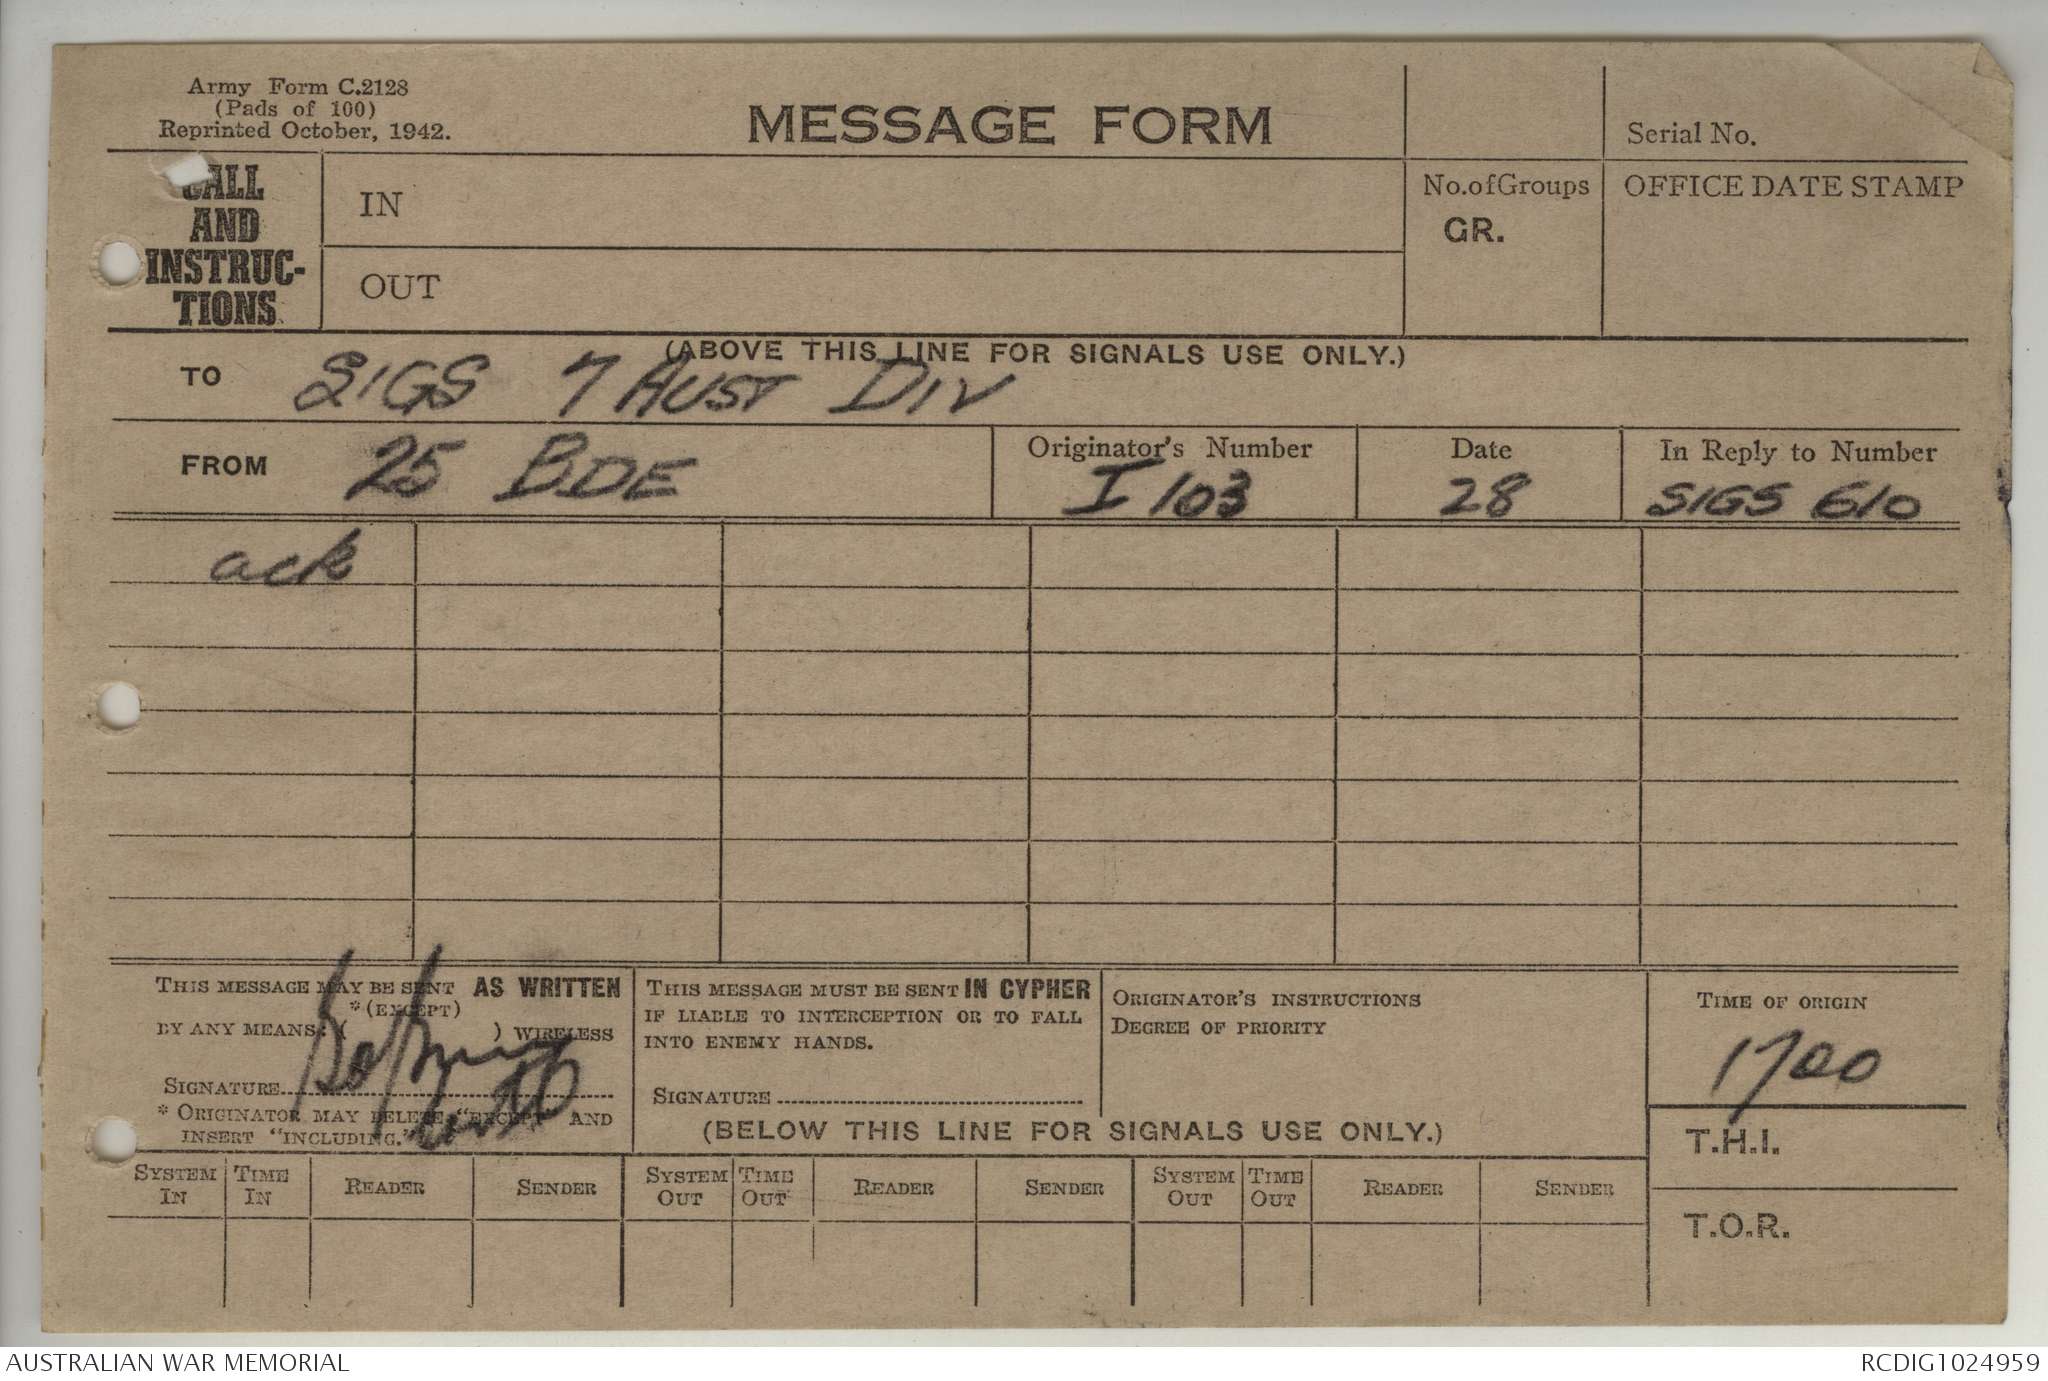 Army Form C.2128
(Pads of 100)
Reprinted October, 1942.
MESSAGE FORM
Serial No.
CALL
AND
INSTRUC-
TIONS
IN
OUT
No. of Groups
GR.
OFFICE DATE STAMP
(ABOVE THIS LINE FOR SIGNALS USE ONLY.)
TO SIGS 7 AUST DIV
FROM 25 BDE
Originator's Number
I 103
Date
28
In Reply to Number
SIGS 610
ack
THIS MESSAGE MAY BE SENT AS WRITTEN
*(EXCEPT)
BY ANY MEANS. ( ) WIRELESS
SIGNATURE
* ORIGINATOR MAY DELETE "EXCEPT" AND
INSERT "INCLUDING."
THIS MESSAGE MUST BE SENT IN CYPHER
IF LIABLE TO INTERCEPTION OR TO FALL
INTO ENEMY HANDS.
SIGNATURE
ORIGINATOR'S INSTRUCTIONS
DEGREE OF PRIORITY
TIME OF ORIGIN
1700
(BELOW THIS LINE FOR SIGNALS USE ONLY.)
T.H.I.
T.O.R.
SYSTEM IN TIME IN READER SENDER SYSTEM OUT TIME OUT READER SENDER SYSTEM OUT TIME OUT READER SENDER
AUSTRALIAN WAR MEMORIAL
RCDIG1024959